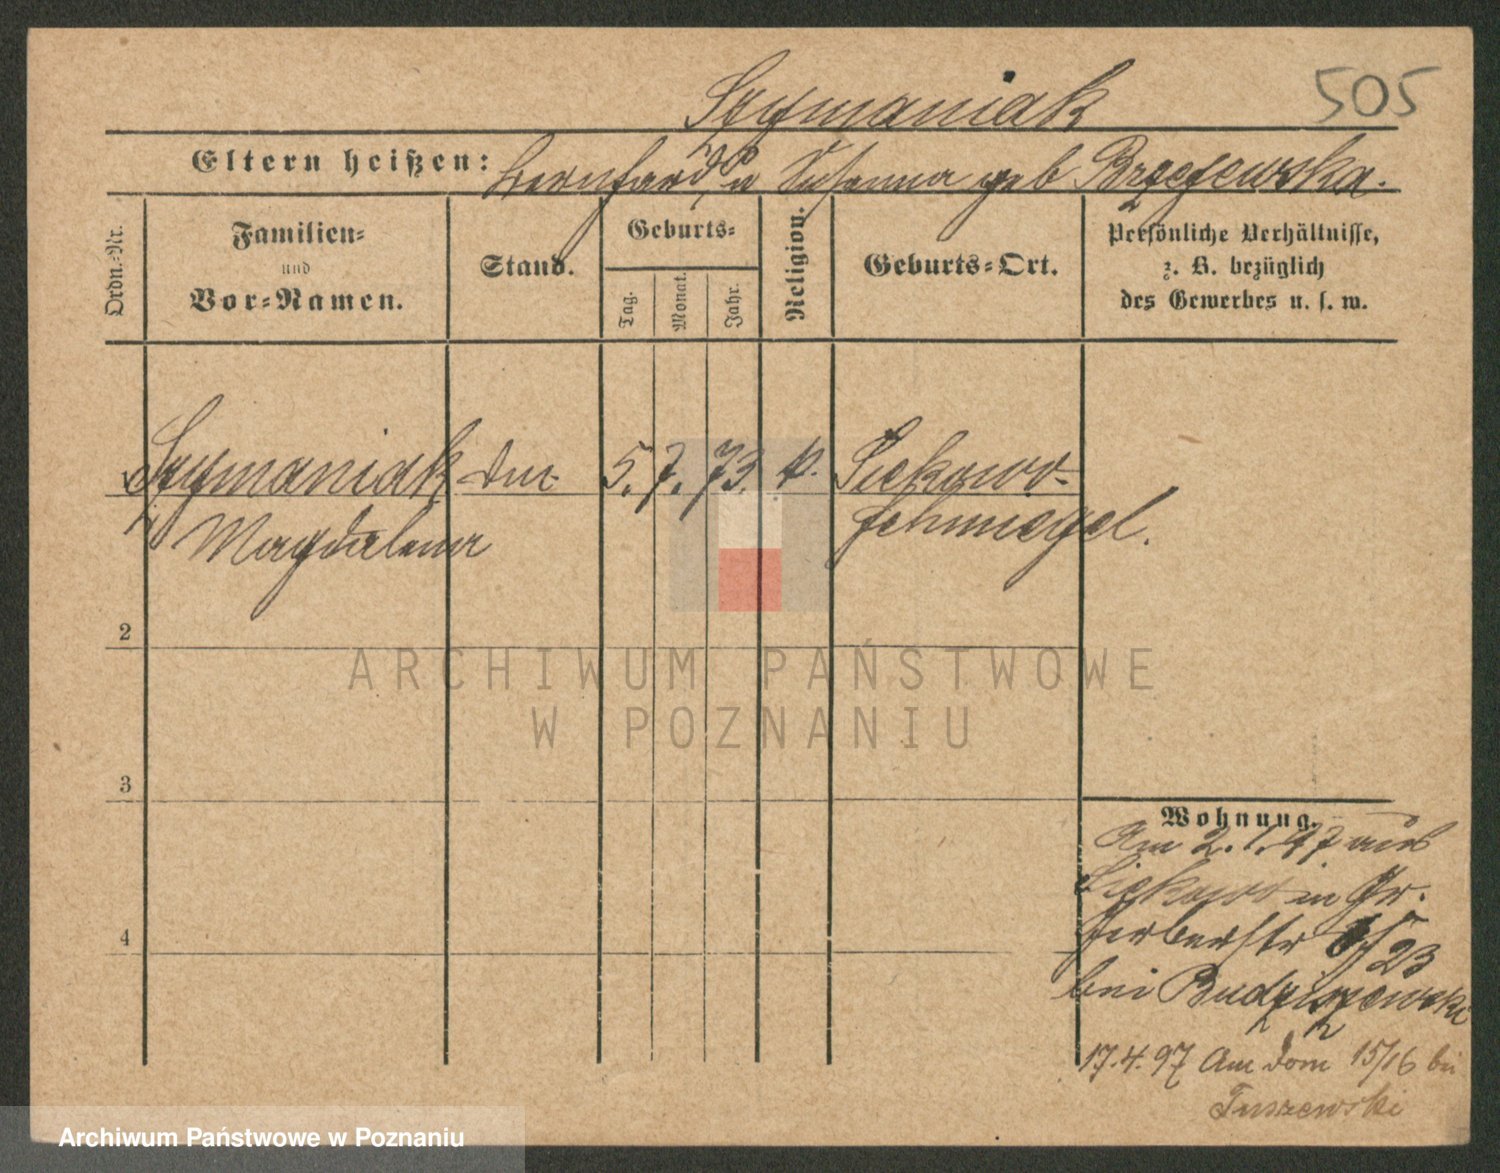 505
Szymaniak
Eltern heißen: Bernhard u Susanna geb Brzezewska.
Ordn.-Nr.
Familien-
und
Vor-Namen.
Stand.
Geburts-
Tag.
Monat.
Jahr.
Religion.
Geburts-Ort.
Persönliche Verhältnisse,
z. B. bezüglich
des Gewerbes u. s. w.
1 Szymaniak 5. 7. 73. k. Siekowo-
Magdalena Schmiegel.
2
3
4
Wohnung.
Am 2. 1. 97 aus
Siekowo in Gr.
Gerberstr 23
bei Budziszewski
17.4.97 Am Dom 15/16 bei
Tuszewski
ARCHIWUM PAŃSTWOWE
W POZNANIU
Archiwum Państwowe w Poznaniu